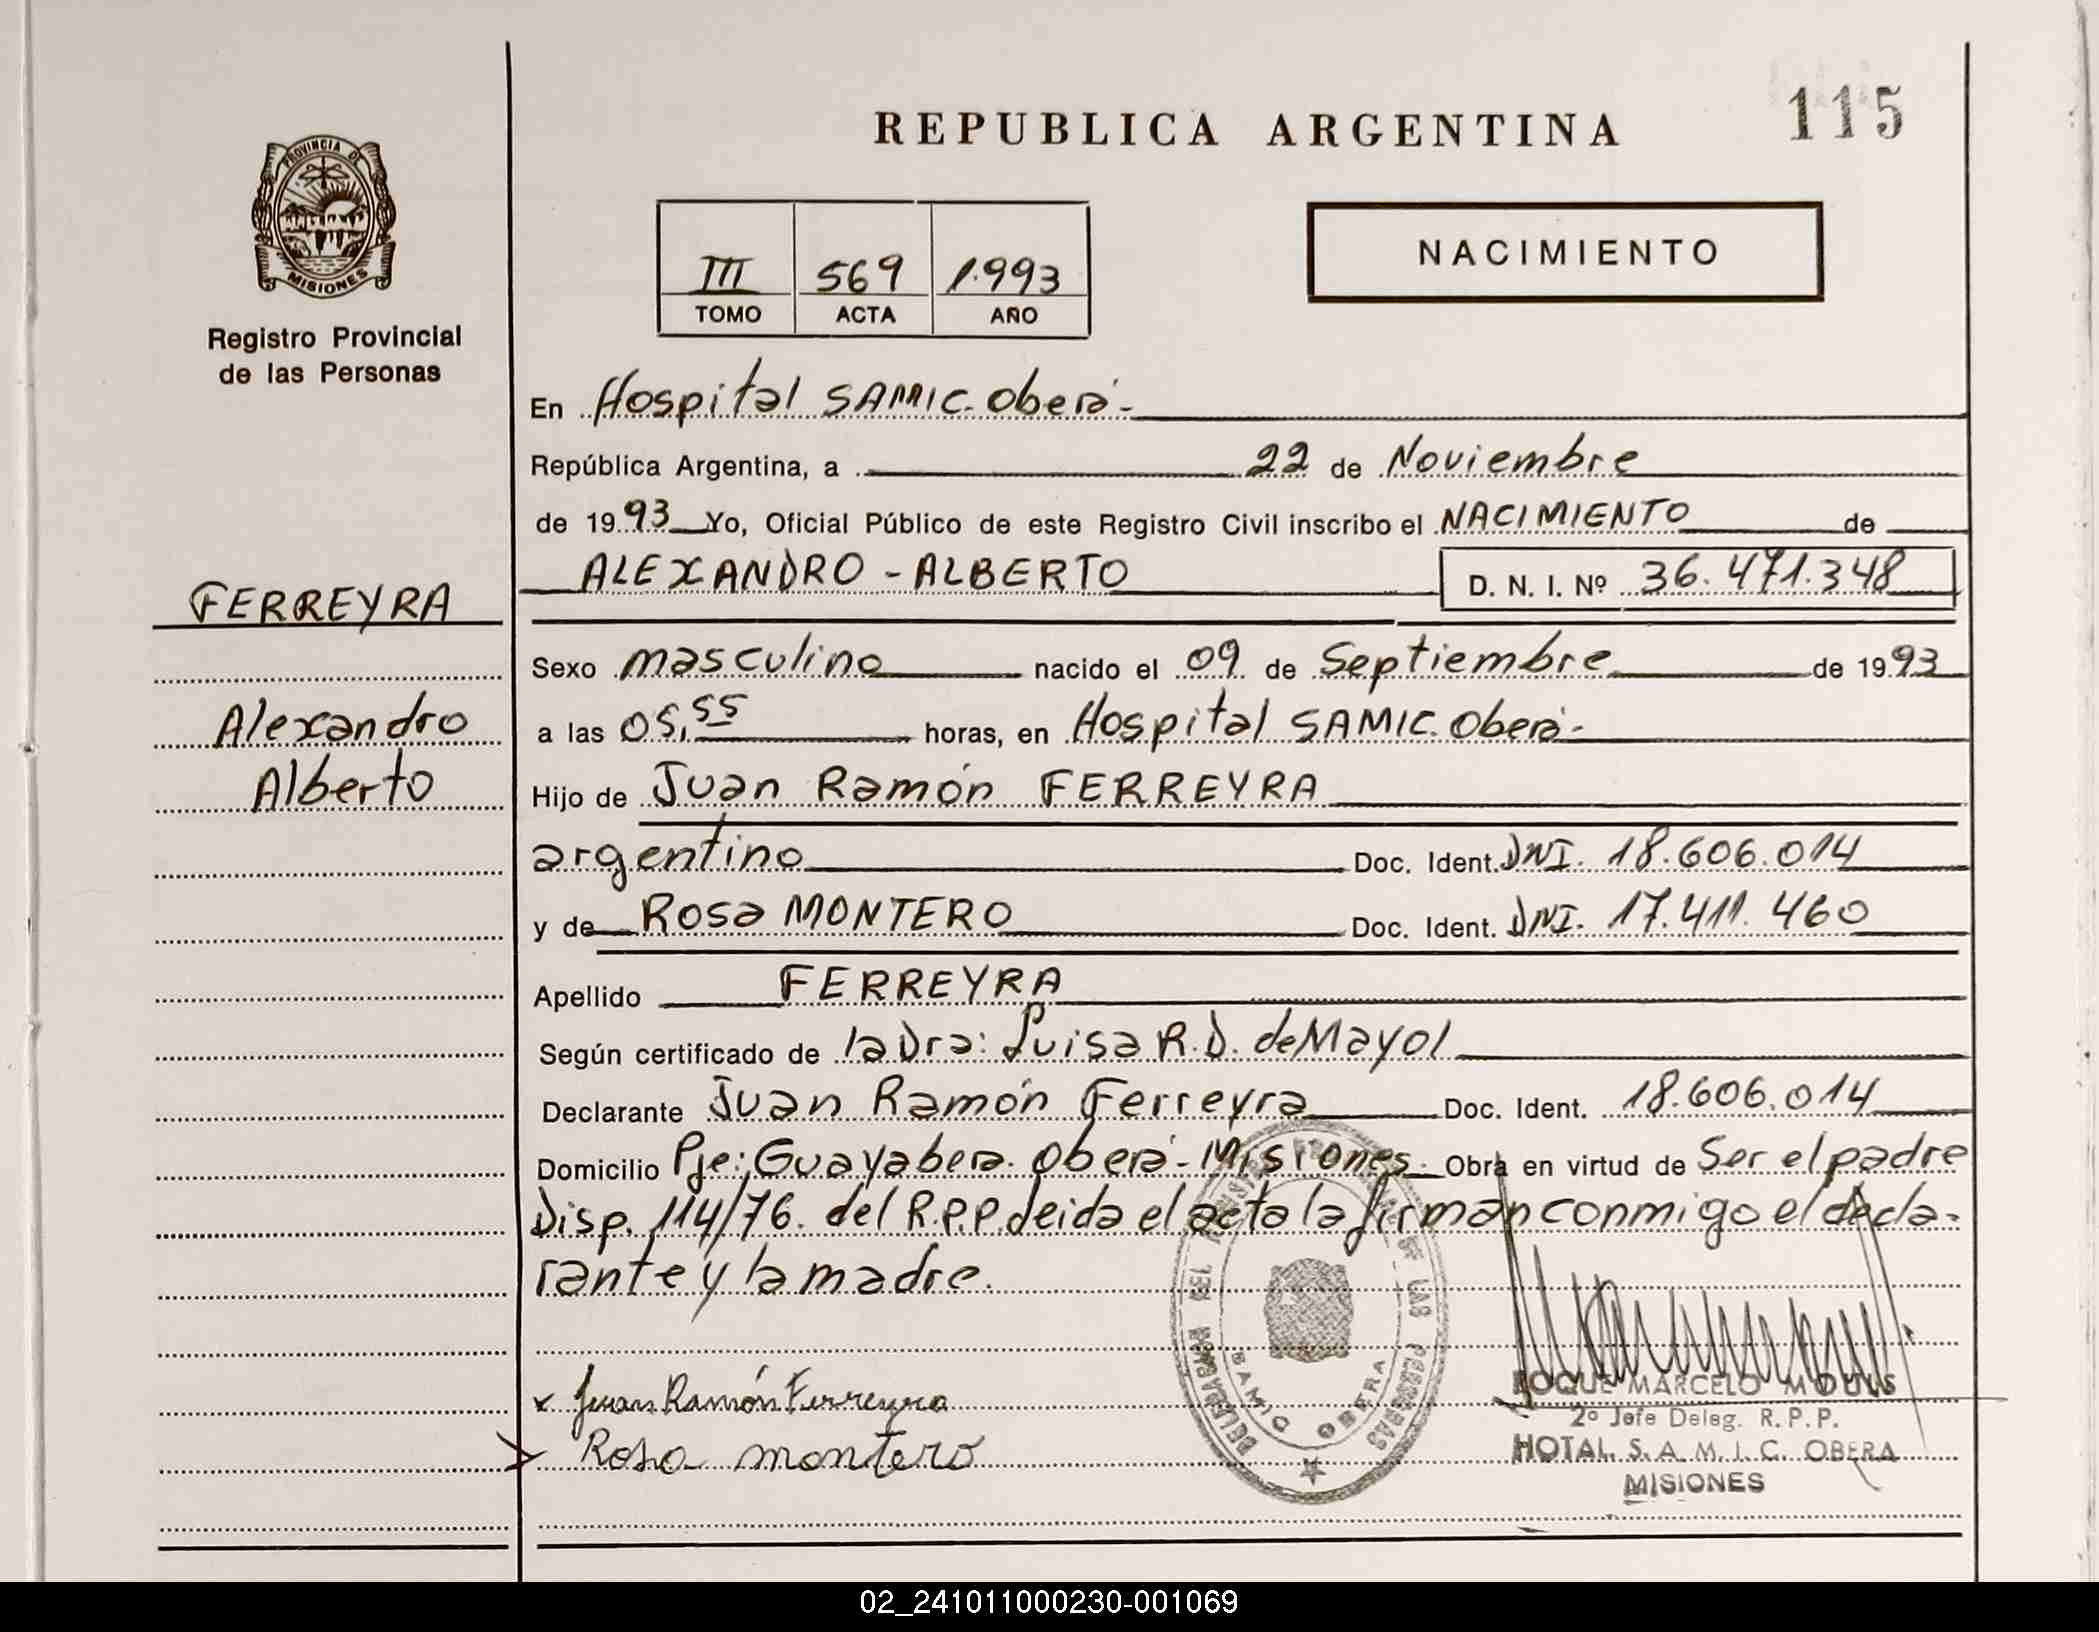 REPUBLICA ARGENTINA
115
PROVINCIA DE
MISIONES
Registro Provincial
de las Personas
NACIMIENTO
III 569 1.993
TOMO ACTA AÑO
En Hospital SAMIC. Oberá-
República Argentina, a 22 de Noviembre
de 1993 Yo, Oficial Público de este Registro Civil inscribo el NACIMIENTO de
ALEXANDRO - ALBERTO D. N. I. Nº 36.471.348
FERREYRA
Alexandro
Alberto
Sexo masculino nacido el 09 de Septiembre de 1993
a las 05,55 horas, en Hospital SAMIC. Oberá-
Hijo de Juan Ramón FERREYRA
argentino Doc. Ident. DNI. 18.606.014
y de Rosa MONTERO Doc. Ident. DNI. 17.411.460
Apellido FERREYRA
Según certificado de la Dra: Luisa R.D. de Mayol
Declarante Juan Ramón Ferreyra Doc. Ident. 18.606.014
Domicilio Pje: Guayabera. Oberá - Misiones. Obra en virtud de Ser el padre
Disp. 114/76. del R.P.P. leida el acta la firman conmigo el decla-
rante y la madre.
x Juan Ramón Ferreyra
Rosa montero
LAS PERSONAS
SAMIC OBERA
ROQUE MARCELO
2º Jefe Deleg. R.P.P.
HOTAL. S. A. M. I. C. OBERA
MISIONES
02_241011000230-001069